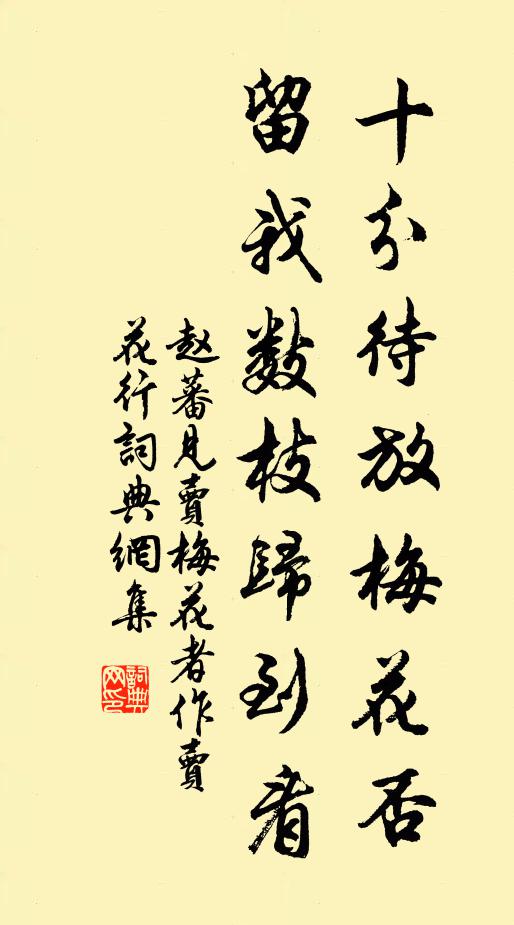 十分待放梅花否
留我數枝歸到看
趙蕃見賣梅花者作賣
花行詞典網集
詞典網印